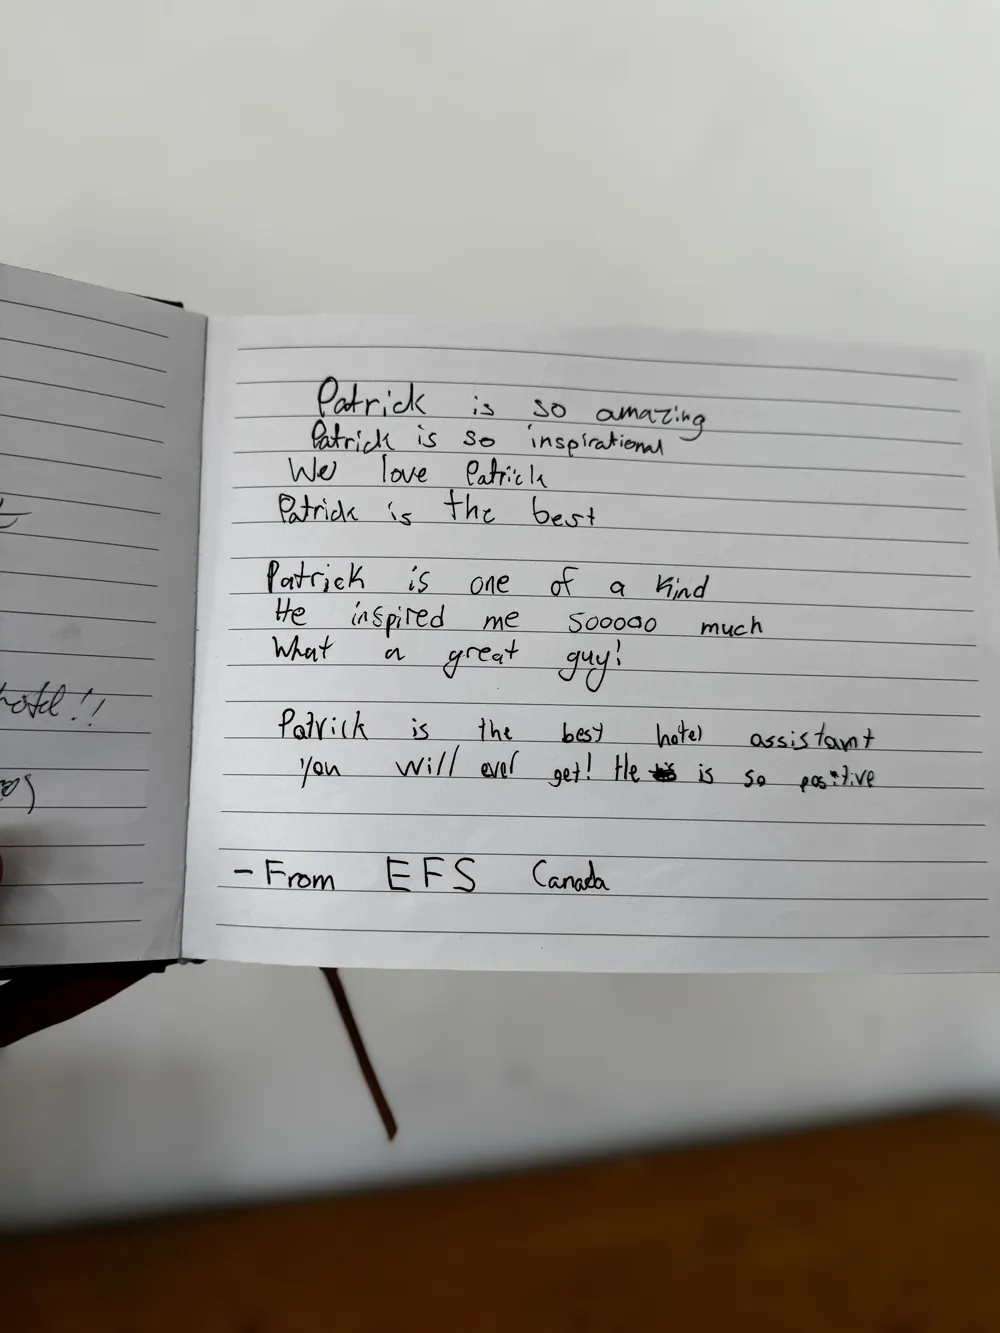 Patrick is so amazing
Patrick is so inspirational
We love Patrick
Patrick is the best
Patrick is one of a kind
He inspired me sooooo much
What a great guy!
Patrick is the best hotel assistant
you will ever get! He is so positive
- From EFS Canada
hotel!!